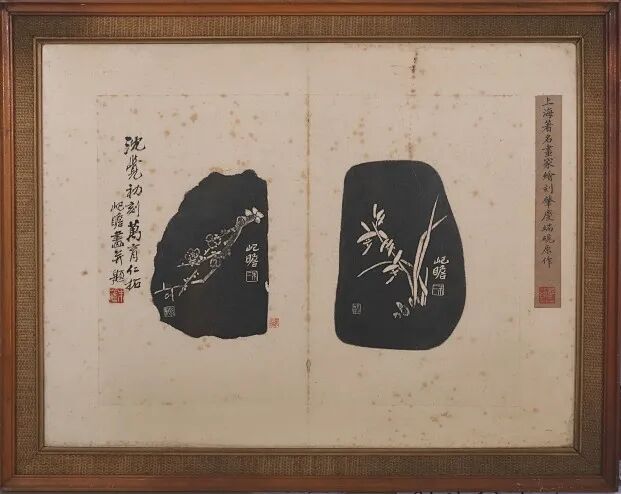 上海著名畫家繪刻肇慶端硯原作
屺瞻
屺瞻
沈覺初刻萬育仁拓
屺瞻畫并題